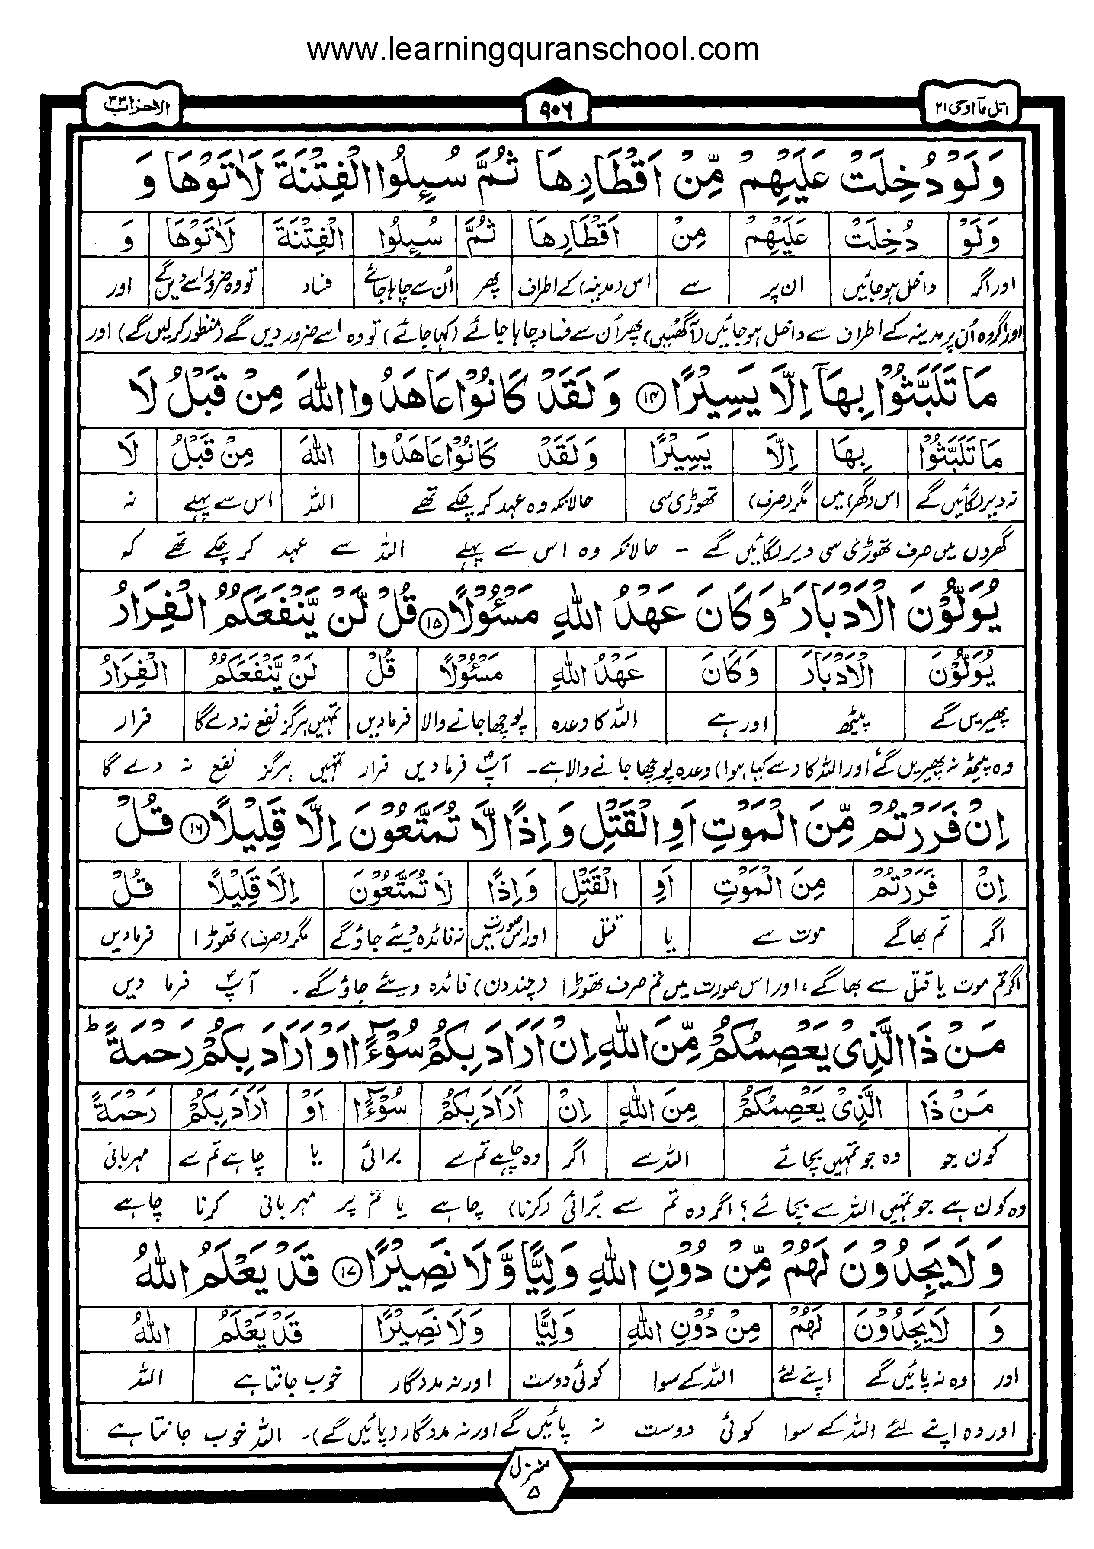 www.learningquranschool.com
اتل مآ اوحی ۲۱ ۹۰۶ الاحزاب ۳۳
وَلَوْ دُخِلَتْ عَلَيْهِمْ مِّنْ اَقْطَارِهَا ثُمَّ سُىِٕلُوا الْفِتْنَةَ لَاٰتَوْهَا وَ
وَلَوْ دُخِلَتْ عَلَيْهِمْ مِنْ اَقْطَارِهَا ثُمَّ سُىِٕلُوا الْفِتْنَةَ لَاٰتَوْهَا وَ
اور اگر داخل ہوجائیں ان پر سے اس (مدینہ) کے اطراف پھر اُن سے چاہا جائے فساد تو وہ ضرور اسے دیں گے اور
اور اگر وہ اُن پر مدینہ کے اطراف سے داخل ہوجائیں (آگھسیں) پھر اُن سے فساد چاہا جائے (کہا جائے) تو وہ اسے ضرور دیں گے (منظور کرلیں گے) اور
مَا تَلَبَّثُوْا بِهَآ اِلَّا يَسِيْرًا ۱۴ وَلَقَدْ كَانُوْا عَاهَدُوا اللّٰهَ مِنْ قَبْلُ لَا
مَا تَلَبَّثُوْا بِهَا اِلَّا يَسِيْرًا وَلَقَدْ كَانُوْا عَاهَدُوا اللّٰهَ مِنْ قَبْلُ لَا
نہ دیر لگائیں گے اس (گھر) میں مگر (صرف) تھوڑی سی حالانکہ وہ عہد کر چکے تھے اللہ اس سے پہلے نہ
گھروں میں صرف تھوڑی سی دیر لگائیں گے - حالانکہ وہ اس سے پہلے اللہ سے عہد کر چکے تھے کہ
يُوَلُّوْنَ الْاَدْبَارَ ؕ وَكَانَ عَهْدُ اللّٰهِ مَسْـُٔوْلًا ۱۵ قُلْ لَّنْ يَّنْفَعَكُمُ الْفِرَارُ
يُوَلُّوْنَ الْاَدْبَارَ وَكَانَ عَهْدُ اللّٰهِ مَسْـُٔوْلًا قُلْ لَنْ يَّنْفَعَكُمُ الْفِرَارُ
پھیریں گے پیٹھ اور ہے اللہ کا وعدہ پوچھا جانے والا فرمادیں تمہیں ہرگز نفع نہ دے گا فرار
وہ پیٹھ نہ پھیریں گے اور اللہ کا (سے کیا ہوا) وعدہ پوچھا جانے والا ہے۔ آپؐ فرمادیں فرار تمہیں ہرگز نفع نہ دے گا
اِنْ فَرَرْتُمْ مِّنَ الْمَوْتِ اَوِ الْقَتْلِ وَاِذًا لَّا تُمَتَّعُوْنَ اِلَّا قَلِيْلًا ۱۶ قُلْ
اِنْ فَرَرْتُمْ مِنَ الْمَوْتِ اَوِ الْقَتْلِ وَاِذًا لَا تُمَتَّعُوْنَ اِلَّا قَلِيْلًا قُلْ
اگر تم بھاگے موت سے یا قتل اور اس صورت میں نہ فائدہ دیے جاؤ گے مگر (صرف) تھوڑا فرمادیں
اگر تم موت یا قتل سے بھاگے، اور اس صورت میں تم صرف تھوڑا (چند دن) فائدہ دیئے جاؤ گے۔ آپؐ فرما دیں
مَنْ ذَا الَّذِيْ يَعْصِمُكُمْ مِّنَ اللّٰهِ اِنْ اَرَادَ بِكُمْ سُوْٓءًا اَوْ اَرَادَ بِكُمْ رَحْمَةً ؕ
مَنْ ذَا الَّذِيْ يَعْصِمُكُمْ مِنَ اللّٰهِ اِنْ اَرَادَ بِكُمْ سُوْٓءًا اَوْ اَرَادَ بِكُمْ رَحْمَةً
کون جو وہ جو تمہیں بچائے اللہ سے اگر وہ چاہے تم سے برائی یا چاہے تم سے مہربانی
وہ کون ہے جو تمہیں اللہ سے بچائے؟ اگر وہ تم سے بُرائی (کرنا) چاہے یا تم پر مہربانی کرنا چاہے
وَلَا يَجِدُوْنَ لَهُمْ مِّنْ دُوْنِ اللّٰهِ وَلِيًّا وَّلَا نَصِيْرًا ۱۷ قَدْ يَعْلَمُ اللّٰهُ
وَ لَا يَجِدُوْنَ لَهُمْ مِنْ دُوْنِ اللّٰهِ وَلِيًّا وَلَا نَصِيْرًا قَدْ يَعْلَمُ اللّٰهُ
اور وہ نہ پائیں گے اپنے لئے اللہ کے سوا کوئی دوست اور نہ مددگار خوب جانتا ہے اللہ
اور وہ اپنے لئے اللہ کے سوا کوئی دوست نہ پائیں گے اور نہ مددگار (پائیں گے)۔ اللہ خوب جانتا ہے
منزل
۵